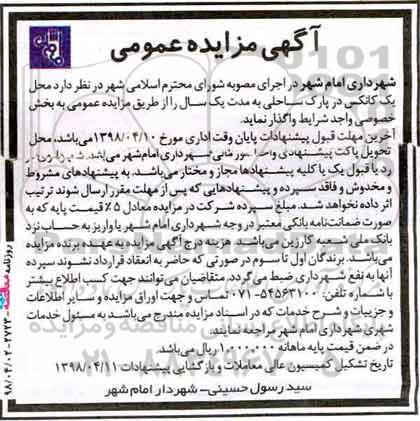 آگهی مزایده عمومی
شهرداری امام شهر در اجرای مصوبه شورای محترم اسلامی شهر در نظر دارد محل
یک کانکس در پارک ساحلی به مدت یک سال را از طریق مزایده عمومی به بخش
خصوصی واجد شرایط واگذار نماید.
آخرین مهلت قبول پیشنهادات پایان وقت اداری مورخ ۱۳۹۸/۰۴/۱۰ می‌باشد، محل
تحویل پاکت پیشنهادی شهرداری امام شهر می‌باشد
رد یا قبول یک یا کلیه پیشنهادها مجاز و مختار می‌باشد. به پیشنهادهای مشروط
و مخدوش و فاقد سپرده و پیشنهادهایی که پس از مهلت مقرر ارسال شوند ترتیب
اثر داده نخواهد شد. مبلغ سپرده شرکت در مزایده معادل ۵٪ قیمت پایه که به
صورت ضمانت‌نامه بانکی معتبر در وجه شهرداری امام شهر یا واریز به حساب نزد
بانک ملی شعبه کارزین می‌باشد. هزینه درج آگهی مزایده به عهده برنده مزایده
می‌باشد. برندگان اول تا سوم در صورتی که حاضر به انعقاد قرارداد نشوند سپرده
آنها به نفع شهرداری ضبط می‌گردد. متقاضیان می‌توانند جهت کسب اطلاع بیشتر
با شماره تلفن: ۵۴۵۶۳۱۰۰-۰۷۱ تماس و جهت اوراق مزایده و سایر اطلاعات
و جزییات و شرح خدمات که در اسناد مزایده مندرج می‌باشد به مسئول خدمات
شهری شهرداری امام شهر مراجعه نمایند.
در ضمن قیمت پایه ماهانه ۱۰۰۰۰۰۰۰ ریال می‌باشد.
تاریخ تشکیل کمیسیون عالی معاملات و بازگشایی پیشنهادات ۱۳۹۸/۰۴/۱۱
سید رسول حسینی- شهردار امام شهر